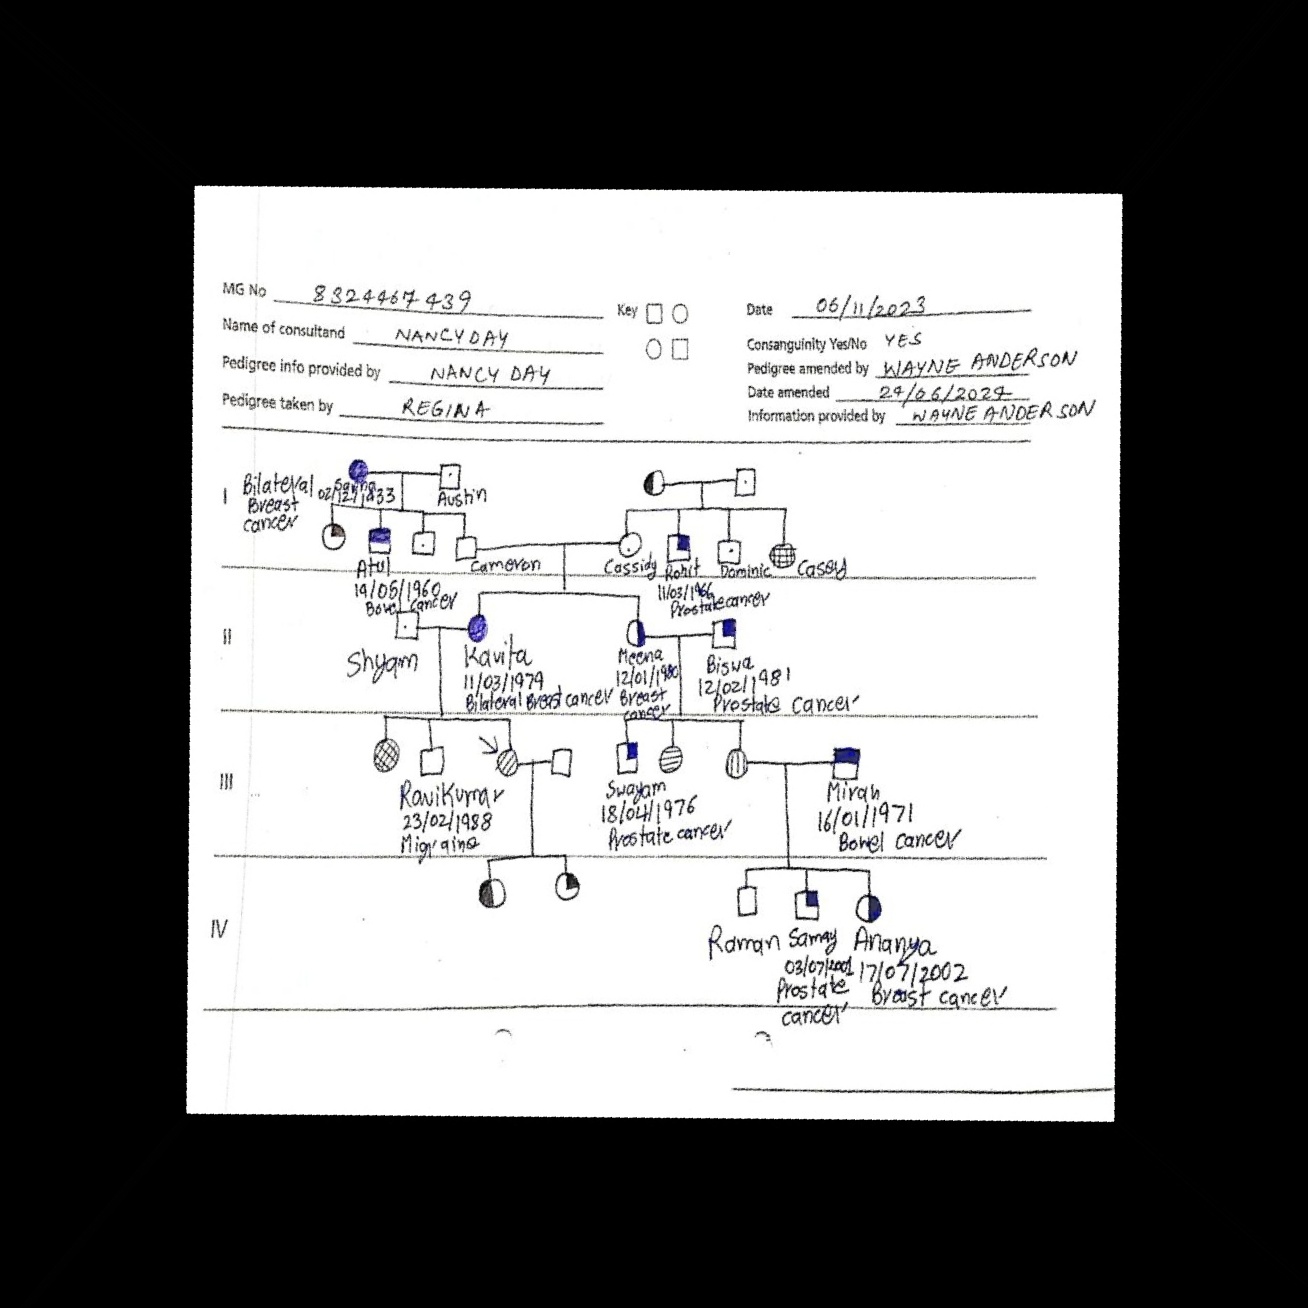 MG No 8324467439
Key
Date 06/11/2023
Name of consultand NANCY DAY
Consanguinity Yes/No YES
Pedigree info provided by NANCY DAY
Pedigree amended by WAYNE ANDERSON
Date amended 24/06/2024
Pedigree taken by REGINA
Information provided by WAYNE ANDERSON
I
Bilateral
Breast
cancer
02/12/1933
Austin
Atul
19/05/1960
Bowel cancer
Cameron
Cassidy
Rohit
11/03/1966
Prostate cancer
Dominic
Casey
II
Shyam
Kavita
11/03/1979
Bilateral Breast cancer
Meena
12/01/1980
Breast
cancer
Biswa
12/02/1981
Prostate cancer
III
Ravikumar
23/02/1988
Migraine
Swayam
18/04/1976
Prostate cancer
Mirah
16/01/1971
Bowel cancer
IV
Raman
Samay
03/07/2001
Prostate
cancer
Ananya
17/07/2002
Breast cancer